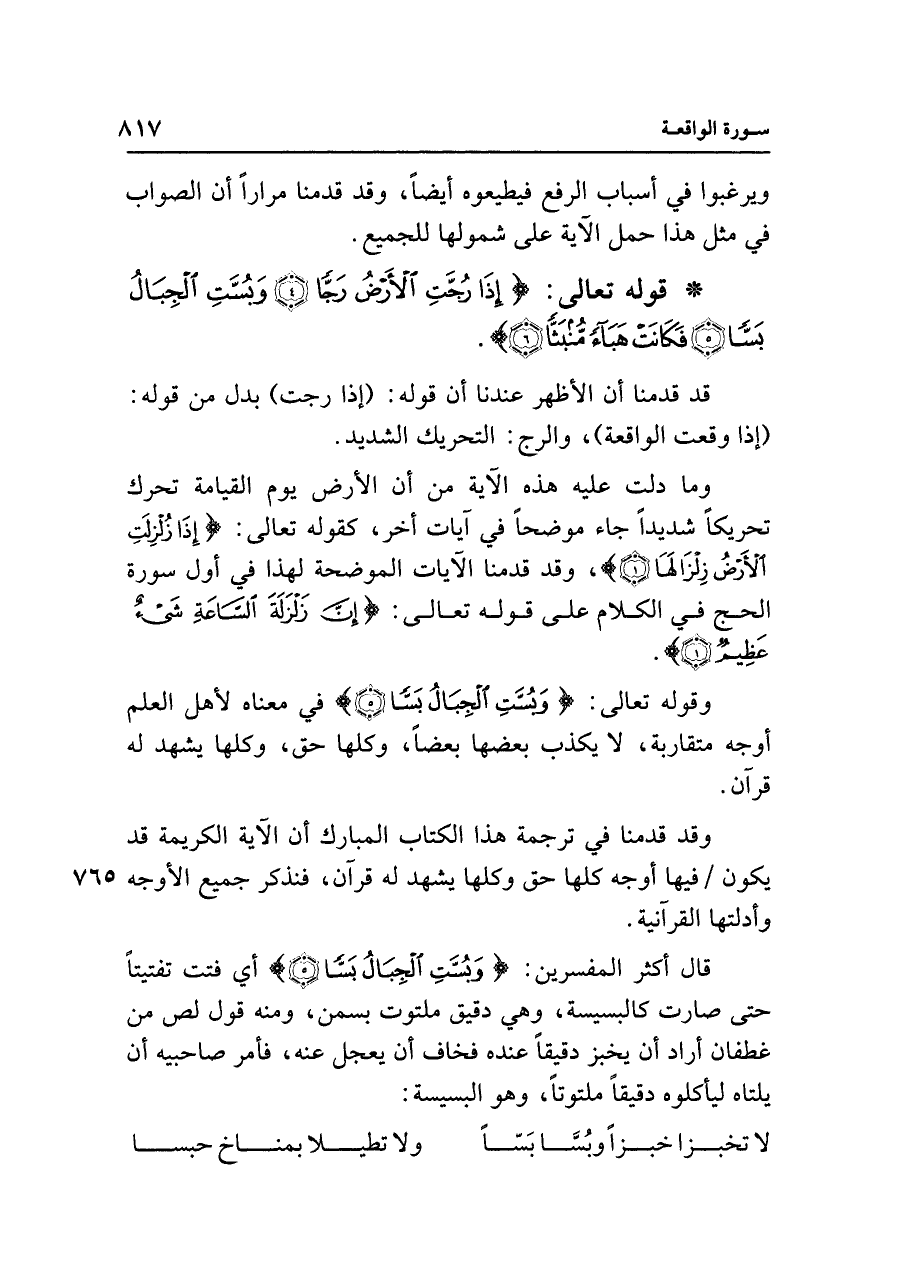 سورة الواقعة ٨١٧
ويرغبوا في أسباب الرفع فيطيعوه أيضاً، وقد قدمنا مراراً أن الصواب
في مثل هذا حمل الآية على شمولها للجميع.
* قوله تعالى: ﴿إِذَا رُجَّتِ ٱلْأَرْضُ رَجًّا ٤ وَبُسَّتِ ٱلْجِبَالُ
بَسًّا ٥ فَكَانَتْ هَبَآءً مُّنۢبَثًّا ٦﴾.
قد قدمنا أن الأظهر عندنا أن قوله: (إذا رجت) بدل من قوله:
(إذا وقعت الواقعة)، والرج: التحريك الشديد.
وما دلت عليه هذه الآية من أن الأرض يوم القيامة تحرك
تحريكاً شديداً جاء موضحاً في آيات أخر، كقوله تعالى: ﴿إِذَا زُلْزِلَتِ
ٱلْأَرْضُ زِلْزَالَهَا ١﴾، وقد قدمنا الآيات الموضحة لهذا في أول سورة
الحج في الكلام على قوله تعالى: ﴿إِنَّ زَلْزَلَةَ ٱلسَّاعَةِ شَىْءٌ
عَظِيمٌ ١﴾.
وقوله تعالى: ﴿وَبُسَّتِ ٱلْجِبَالُ بَسًّا ٥﴾ في معناه لأهل العلم
أوجه متقاربة، لا يكذب بعضها بعضاً، وكلها حق، وكلها يشهد له
قرآن.
وقد قدمنا في ترجمة هذا الكتاب المبارك أن الآية الكريمة قد
يكون / فيها أوجه كلها حق وكلها يشهد له قرآن، فنذكر جميع الأوجه ٧٦٥
وأدلتها القرآنية.
قال أكثر المفسرين: ﴿وَبُسَّتِ ٱلْجِبَالُ بَسًّا ٥﴾ أي فتت تفتيتاً
حتى صارت كالبسيسة، وهي دقيق ملتوت بسمن، ومنه قول لص من
غطفان أراد أن يخبز دقيقاً عنده فخاف أن يعجل عنه، فأمر صاحبيه أن
يلتاه ليأكلوه دقيقاً ملتوتاً، وهو البسيسة:
لا تخبزا خبزاً وبُسَّا بَسّاً ولا تطيلا بمناخ حبسا